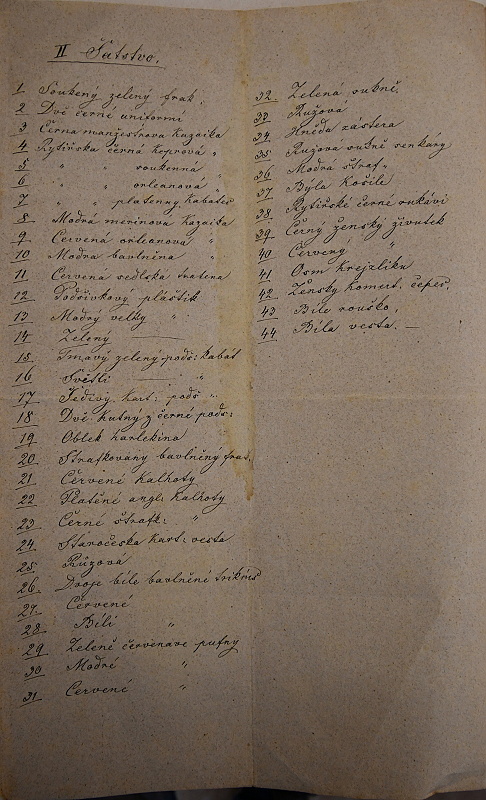 II Šatstvo.
1 Soukený zelený frak.
2 Dvě černé uniformi
3 Černa manžestrova Kazaika
4 Rytířska černá Koprová "
5 " " soukenná "
6 " " orleanová "
7 " " platenny Kabatec
8 Modrá merinova Kazaika
9 Červená orleanová "
10 Modra bavlněna "
11 Červena sedlska
12 Podšívkový pláštik
13 Modrý velky "
14 Zeleny ———
15 Tmavý zelený podš: kabát
16 Světli ——— "
17 Šedivy Kart: podš "
18 Dvě Kutny z černé podš:
19 Oblek harlekina
20 Strafkovany bavlněny frak.
21 Červené Kalhoty
22 Platěné angl: Kalhoty
23 Černé štrafk: "
24 Staročeska Kart: vesta
25 Růzová
26 Dvoje bíle bavlněné
27 Červené
28 Bílí "
29 Zelené červenave
30 Modré "
31 Červené "
32. Zelená sukně.
33 Ružová
34 Hnéda zástera
35 Ružova
36 Modrá štraf "
37 Býla Košile
38 Rytiřské černé rukávi
39 Černý ženský živutek
40 Červený "
41 Osm krejzliku
42 Ženský Komert. čepec.
43 Bíle rouško.
44 Bíla vesta. —